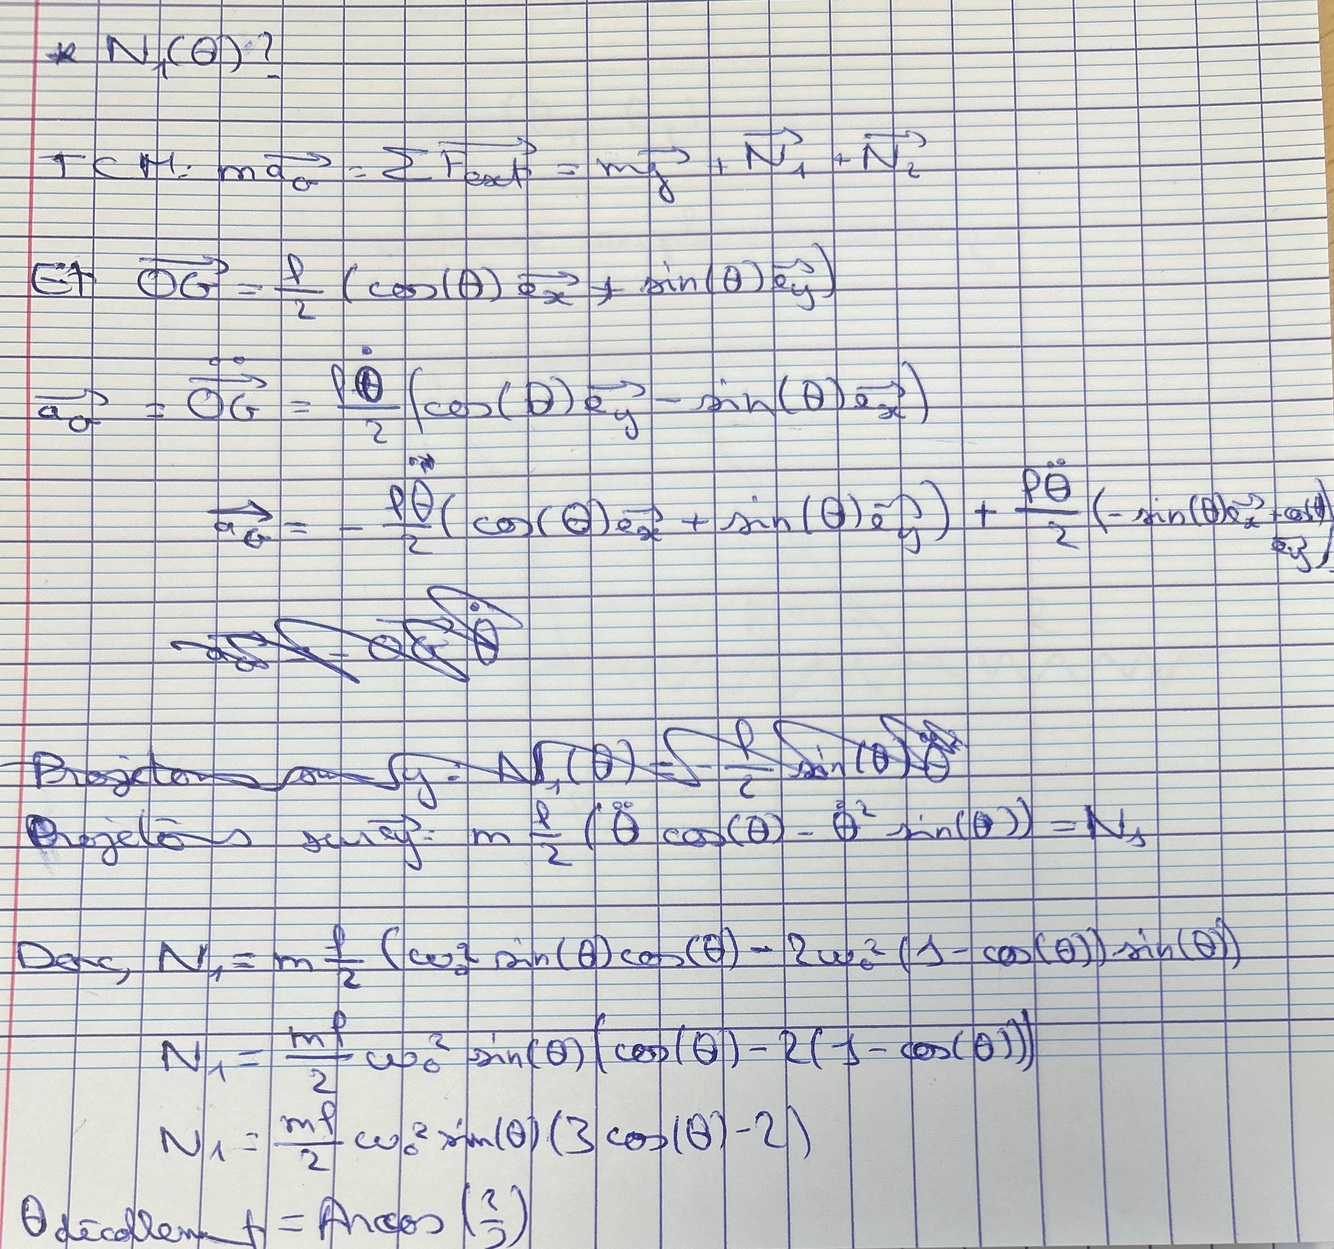 * N₁(θ)?
TCM: m\vec{a_G} = Σ\vec{F_{ext}} = m\vec{g} + \vec{N_1} + \vec{N_2}
Et \vec{OG} = \frac{l}{2} (cos(θ) \vec{e_x} + sin(θ) \vec{e_y})
\vec{a_G} = \ddot{\vec{OG}} = \frac{l\dot{θ}}{2} (cos(θ) \vec{e_y} - sin(θ) \vec{e_x})
\vec{a_G} = - \frac{l\dot{θ}}{2} (cos(θ) \vec{e_x} + sin(θ) \vec{e_y}) + \frac{l\ddot{θ}}{2} (- sin(θ) \vec{e_x} + cos(θ) \vec{e_y})
Projetons sur \vec{ey}: m \frac{l}{2} (\ddot{θ} cos(θ) - \dot{θ}² sin(θ)) = N₁
Donc, N₁ = m \frac{l}{2} (ω₀² sin(θ) cos(θ) - 2ω₀² (1 - cos(θ)) sin(θ))
N₁ = \frac{ml}{2} ω₀² sin(θ) (cos(θ) - 2(1 - cos(θ)))
N₁ = \frac{ml}{2} ω₀² sin(θ) (3 cos(θ) - 2)
θ décollement = Arccos (\frac{2}{3})